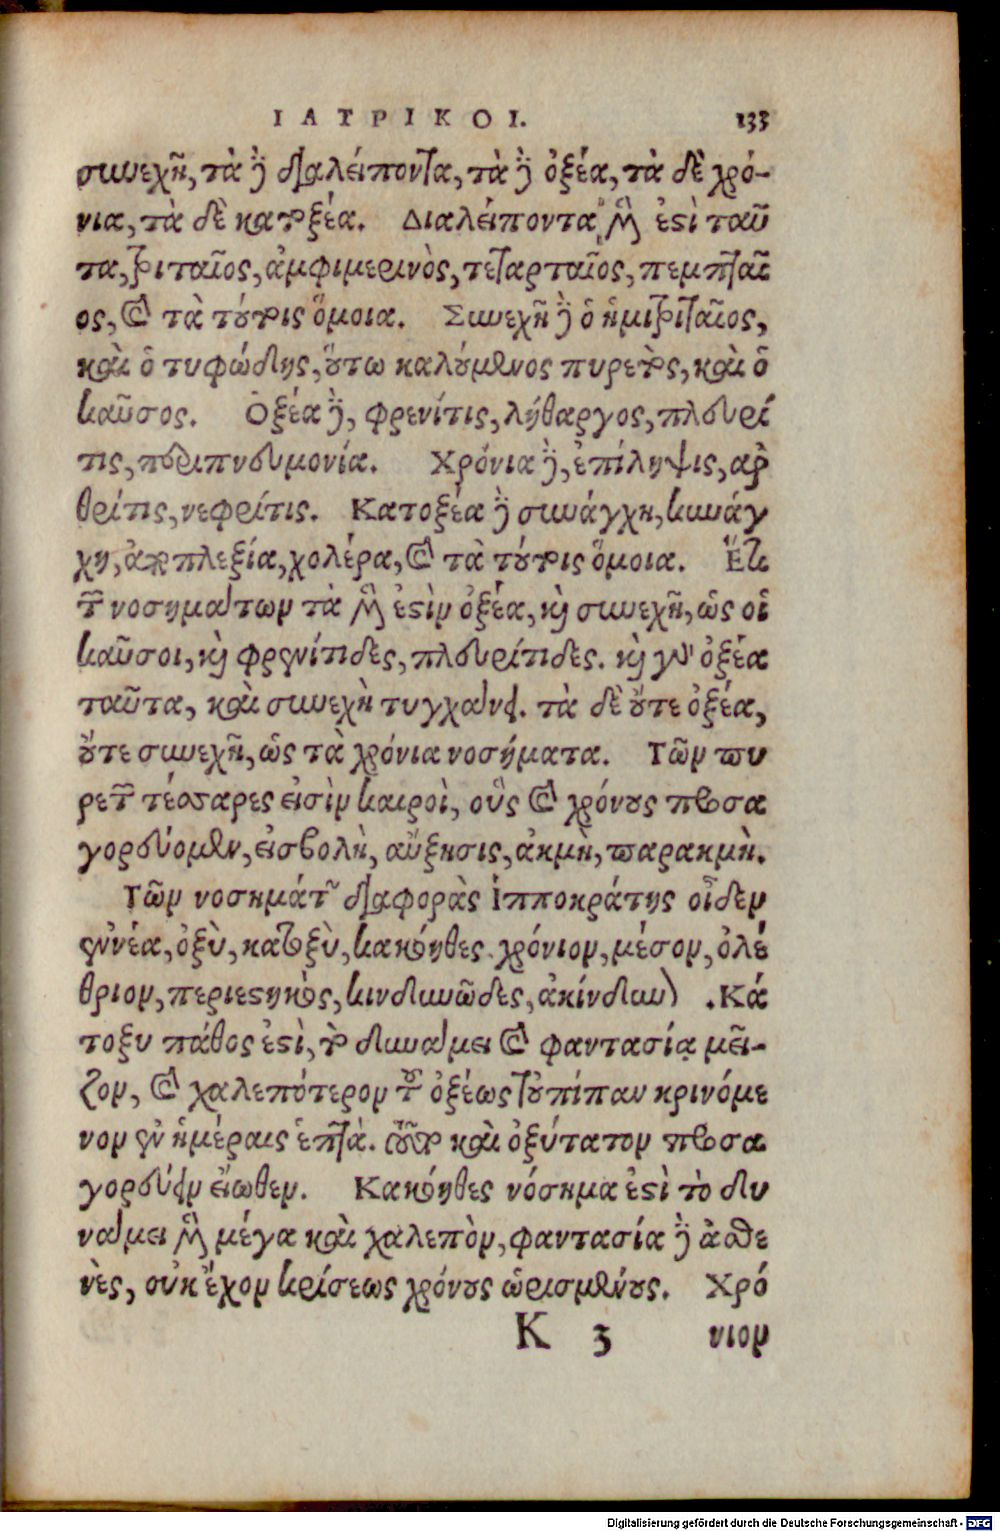 ΙΑΤΡΙΚΟΙ. 133
συνεχῆ, τὰ δὲ διαλείποντα, τὰ δὲ ὀξέα, τὰ δὲ χρό-
νια, τὰ δὲ κατοξέα. Διαλείποντα μὲν ἐστὶ ταῦ
τα, τριταῖος, ἀμφιμερινὸς, τεταρταῖος, πεμπταῖ
ος, καὶ τὰ τούτοις ὅμοια. Συνεχῆ δὲ ὁ ἡμιτριταῖος,
καὶ ὁ τυφώδης, οὕτω καλούμενος πυρετὸς, καὶ ὁ
καῦσος. Ὀξέα δὲ, φρενίτις, λήθαργος, πλευρί
τις, περιπνευμονία. Χρόνια δὲ, ἐπίληψις, αρ
θρίτις, νεφρίτις. Κατοξέα δὲ συνάγχη, κυνάγ
χη, ἀποπλεξία, χολέρα, καὶ τὰ τούτοις ὅμοια. Ἔτι
τῶν νοσημάτων τὰ μὲν ἐστὶν ὀξέα, καὶ συνεχῆ, ὡς οἱ
καῦσοι, καὶ φρενίτιδες, πλευρίτιδες. καὶ γὰρ ὀξέα
ταῦτα, καὶ συνεχὴ τυγχάνει. τὰ δὲ οὔτε ὀξέα,
οὔτε συνεχῆ, ὡς τὰ χρόνια νοσήματα. Τῶν πυ
ρετῶν τέσσαρες εἰσὶν καιροὶ, οὓς καὶ χρόνους προσα
γορεύομεν, εἰσβολὴ, αὔξησις, ἀκμὴ, παρακμὴ.
Τῶν νοσημάτων διαφορὰς Ἱπποκράτης οἶδεν
ἐννέα, ὀξὺ, κατοξὺ, κακόηθες. χρόνιον, μέσον, ὀλέ
θριον, περιεστηκὸς, κινδυνῶδες, ἀκίνδυνον. Κά
τοξυ πάθος ἐστὶ, τὸ δυνάμει καὶ φαντασίᾳ μεῖ-
ζον, καὶ χαλεπότερον τοῦ ὀξέως τουπίπαν κρινόμε
νον ἐν ἡμέραις ἑπτὰ. τοῦτο καὶ ὀξύτατον προσα
γορεύειν εἴωθεν. Κακόηθες νόσημα ἐστὶ τὸ δυ
νάμει μὲν μέγα καὶ χαλεπὸν, φαντασία δὲ ἀσθε
νὲς, οὐκ ἔχον κρίσεως χρόνους ὡρισμένους. Χρό
K 3 νιον
Digitalisierung gefördert durch die Deutsche Forschungsgemeinschaft - DFG